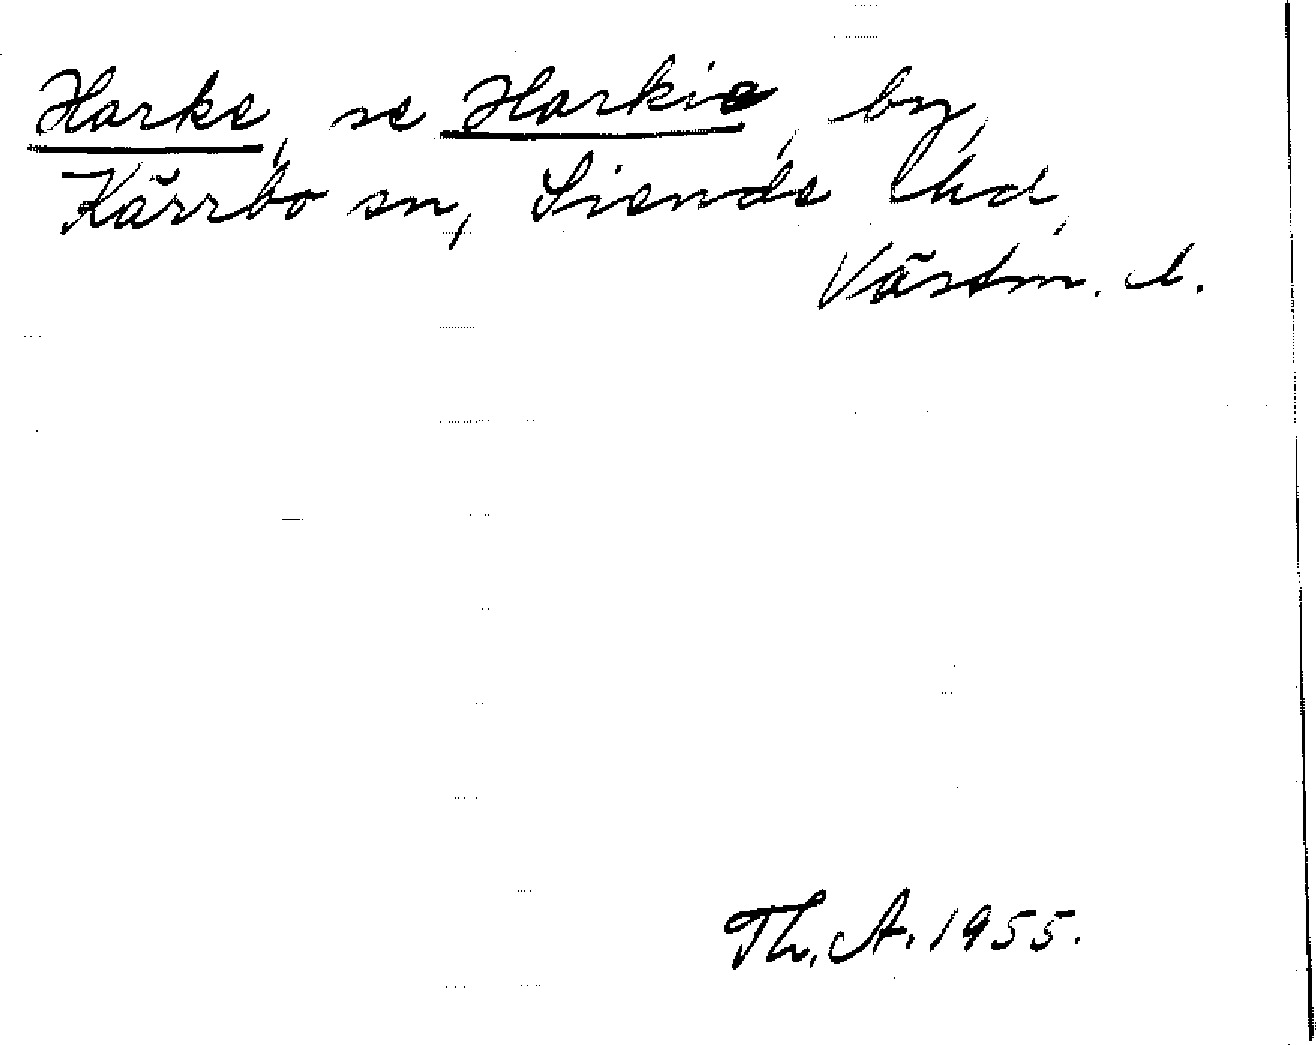 Harke, se Harkie, by,
Kärrbo sn, Siende hd,
Västm. l.
Th. A. 1955.